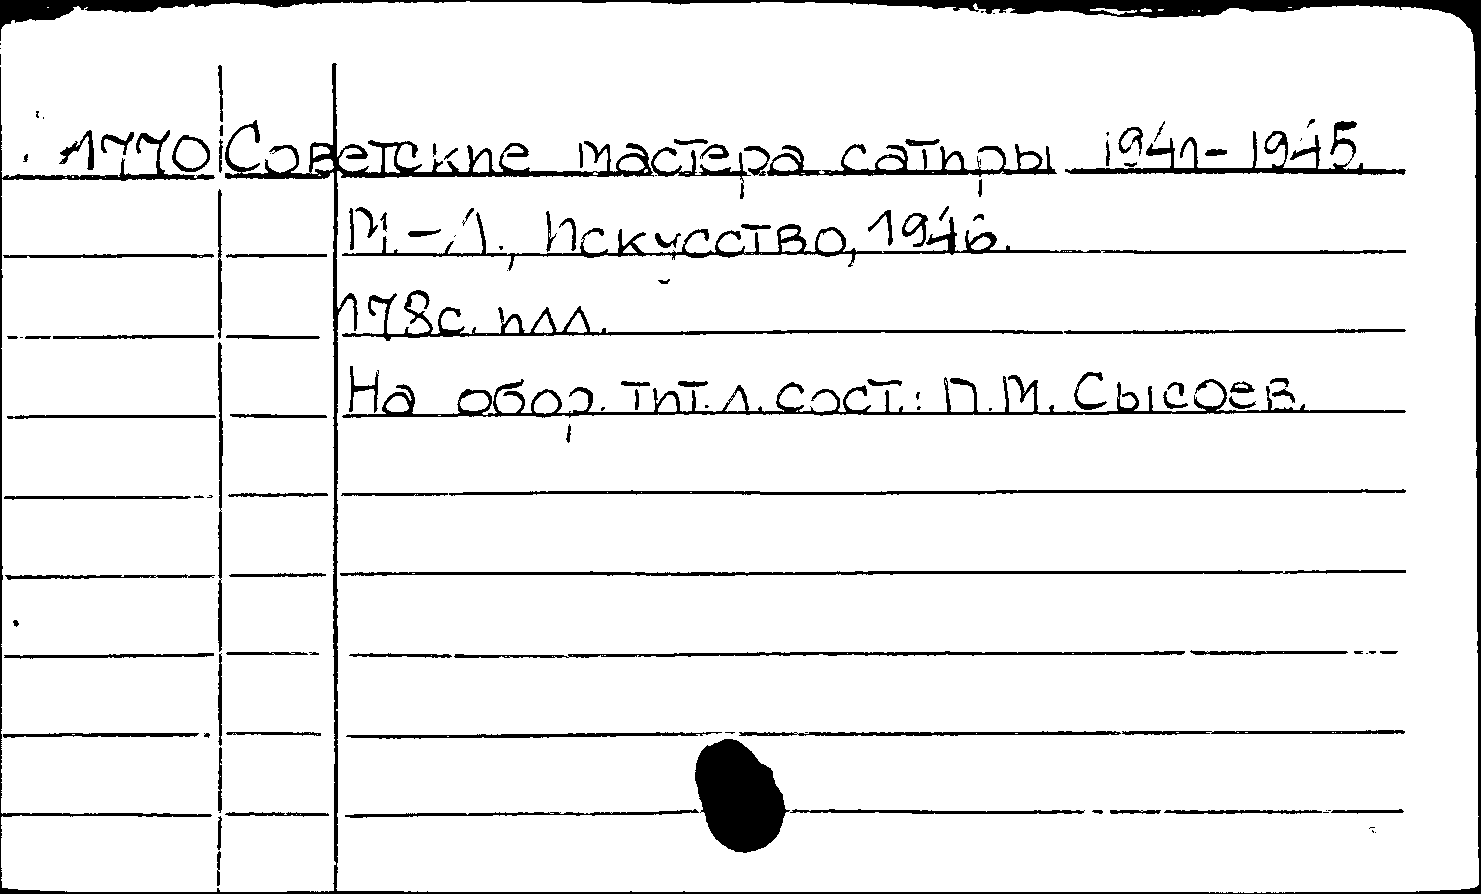 1770 Советские мастера сатиры 1941-1945.
М.-Л., Искусство, 1946.
178с. илл.
На обор. тит. л. сост.: П.М. Сысоев.